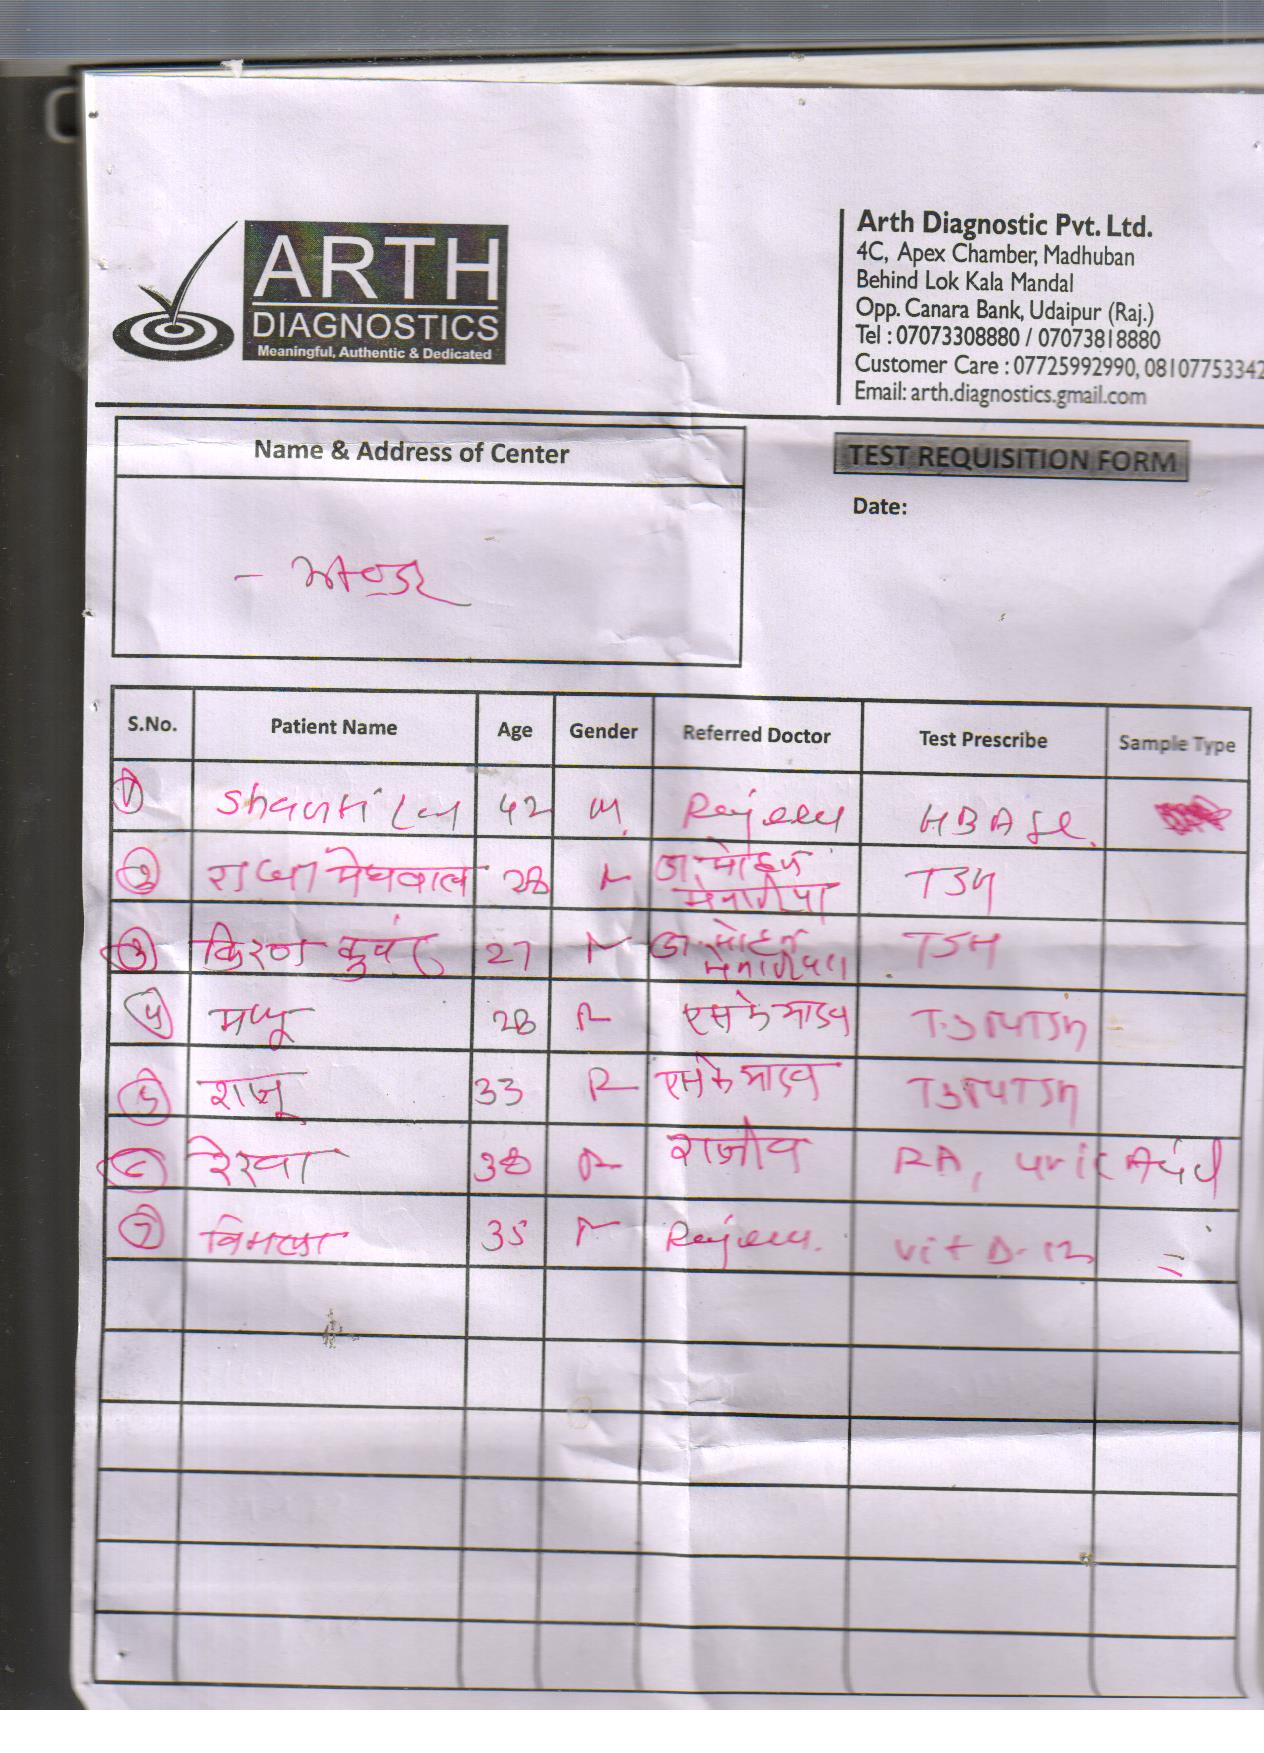 ARTH
DIAGNOSTICS
Meaningful, Authentic & Dedicated
Arth Diagnostic Pvt. Ltd.
4C, Apex Chamber, Madhuban
Behind Lok Kala Mandal
Opp. Canara Bank, Udaipur (Raj.)
Tel : 07073308880 / 07073818880
Customer Care : 07725992990, 08107753342
Email: arth.diagnostics.gmail.com
Name & Address of Center
TEST REQUISITION FORM
Date:
S.No. Patient Name Age Gender Referred Doctor Test Prescribe Sample Type
1 Shanti Lal 42 M. Rajeev
2 मेघवाल 28 डा. मोहन मेनारीया TSH
3 किरण कुवर 27 डा. मोहन मेनारीया TSH
4 28 एस के T3T4TSH
5 राजू 33 एस के T3T4TSH
6 रेखा 38 राजीव RA, uric Acid
7 विमला 35 Rajeev. vit